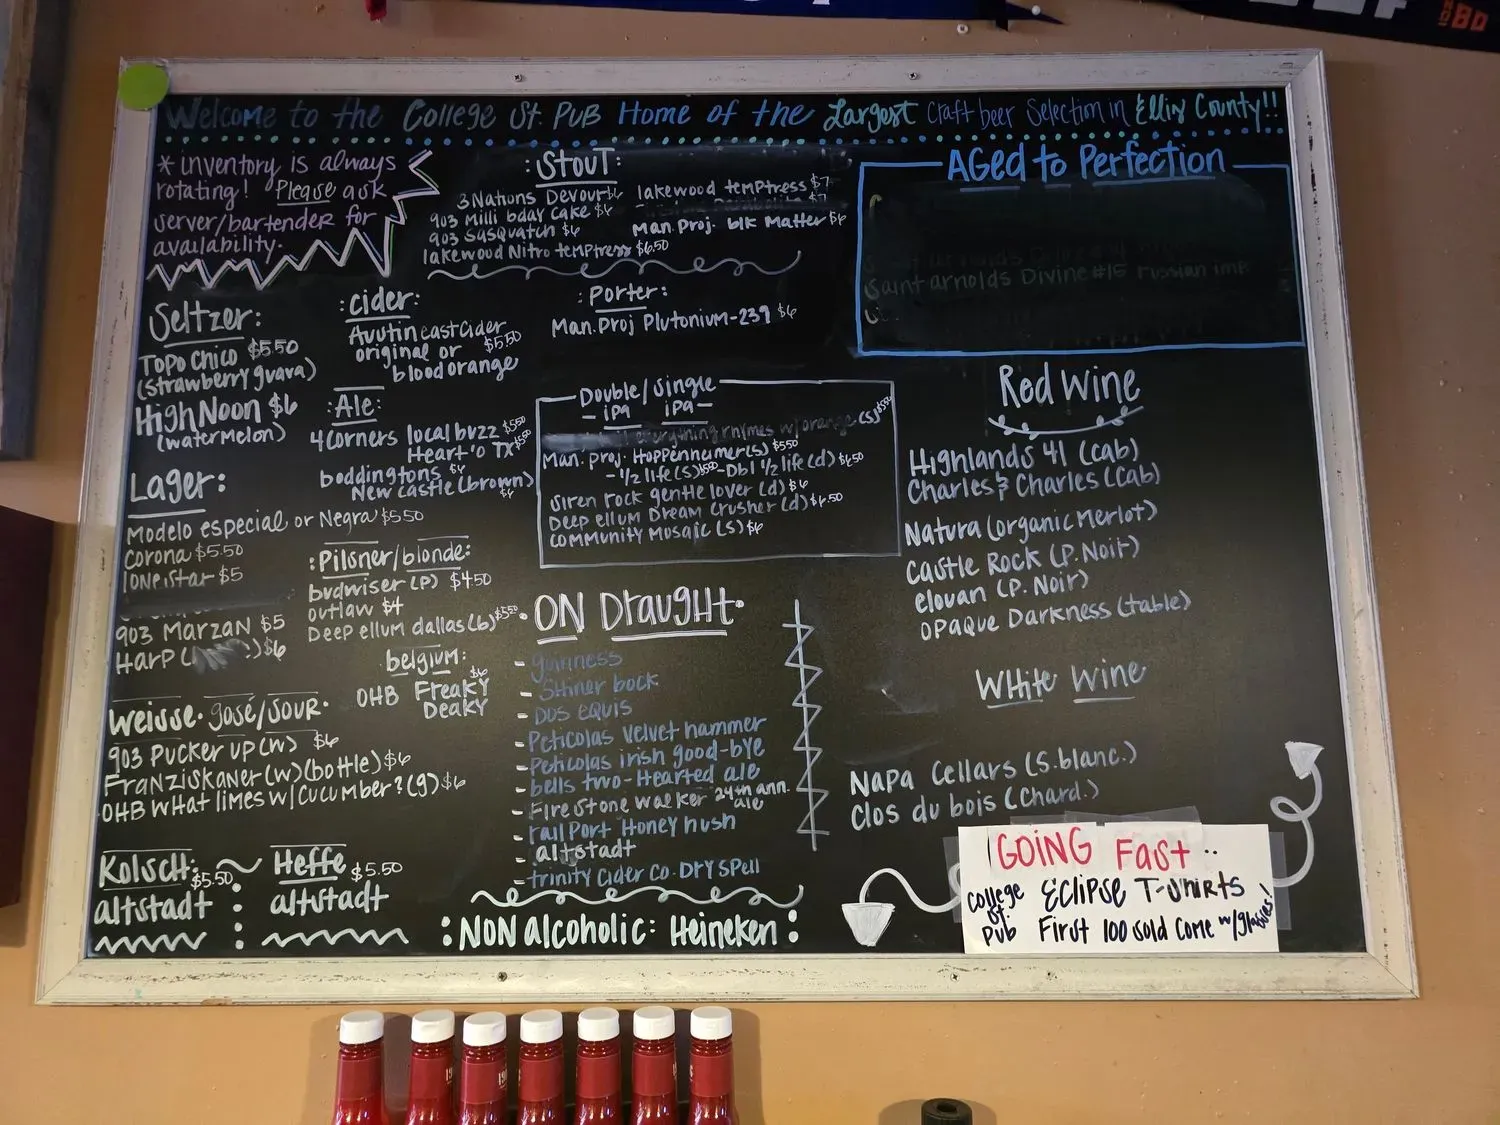 Welcome to the College St. Pub Home of the Largest Craft beer Selection in Ellis County!!
* inventory is always
rotating! Please ask
server/bartender for
availability.
:Stout:
3 Nations Devour $6
903 Milli bday Cake $6
903 Sasquatch $6
lakewood Nitro temptress $6.50
lakewood temptress $7
Man. Proj. blk Matter $6
Aged to Perfection
Saint arnolds Divine #15 russian imp
Seltzer:
Topo Chico $5.50
(strawberry guava)
High Noon $6
(watermelon)
:Cider:
Austin eastCider
original or $5.50
blood orange
:Porter:
Man. Proj Plutonium-239 $6
:Ale:
4 Corners local buzz $5.50
Heart'o TX $5.50
boddingtons $6
New Castle (brown)
$6
Double/Single
- ipa ipa -
everything rhymes w/orange (S) $5.50
Man. proj. Hoppenheimer(s) $5.50
- 1/2 life (s) $5.50 - Dbl 1/2 life (d) $6.50
Siren rock gentle lover (d) $6
Deep ellum Dream Crusher (d) $6.50
Community Mosaic (s) $6
Lager:
Modelo especial or Negra $5.50
Corona $5.50
lone star $5
903 Marzan $5
Harp $6
:Pilsner/blonde:
budwiser (p) $4.50
outlaw $4
Deep ellum dallas (b) $5.50
belgium:
$6
OHB Freaky
Deaky
Weisse. gose/sour.
903 Pucker up (w) $6
Franziskaner (w) (bottle) $6
OHB What limes w/cucumber? (g) $6
Kolsch: $5.50
altstadt
Heffe $5.50
altstadt
ON Draught.
- guinness
- Shiner bock
- Dos equis
- Peticolas Velvet hammer
- Peticolas irish good-bye
- bells two-Hearted ale
- Firestone walker 24th ann. ale
- railport Honey hush
- altstadt
- trinity Cider Co. Dry Spell
:NON alcoholic: Heineken:
Red Wine
Highlands 41 (cab)
Charles & Charles (cab)
Natura (organic Merlot)
Castle Rock (P. Noir)
elouan (P. Noir)
Opaque Darkness (table)
White Wine
Napa Cellars (S. blanc.)
Clos du bois (Chard.)
GOING Fast..
College St. Pub
Eclipse T-Shirts
First 100 sold come w/glasses!